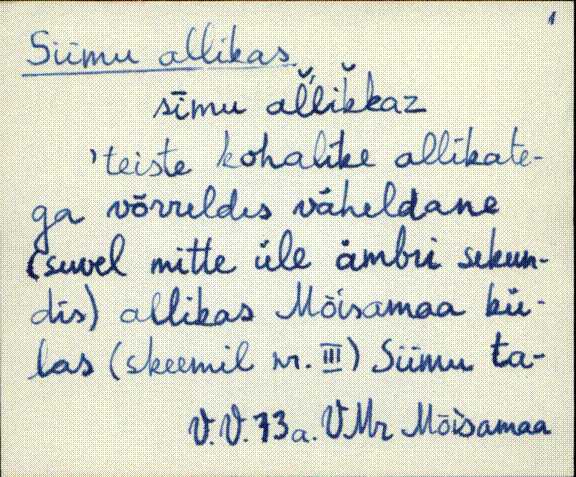 1
Siimu allikas
sīmu al̆lik̆kaz
'teiste kohalike allikate-
ga võrreldes väheldane
(suvel mitte üle ämbri sekun-
dis) allikas Mõisamaa kü-
las (skeemil nr. III) Siimu ta-
V.V. 73a. VMr Mõisamaa